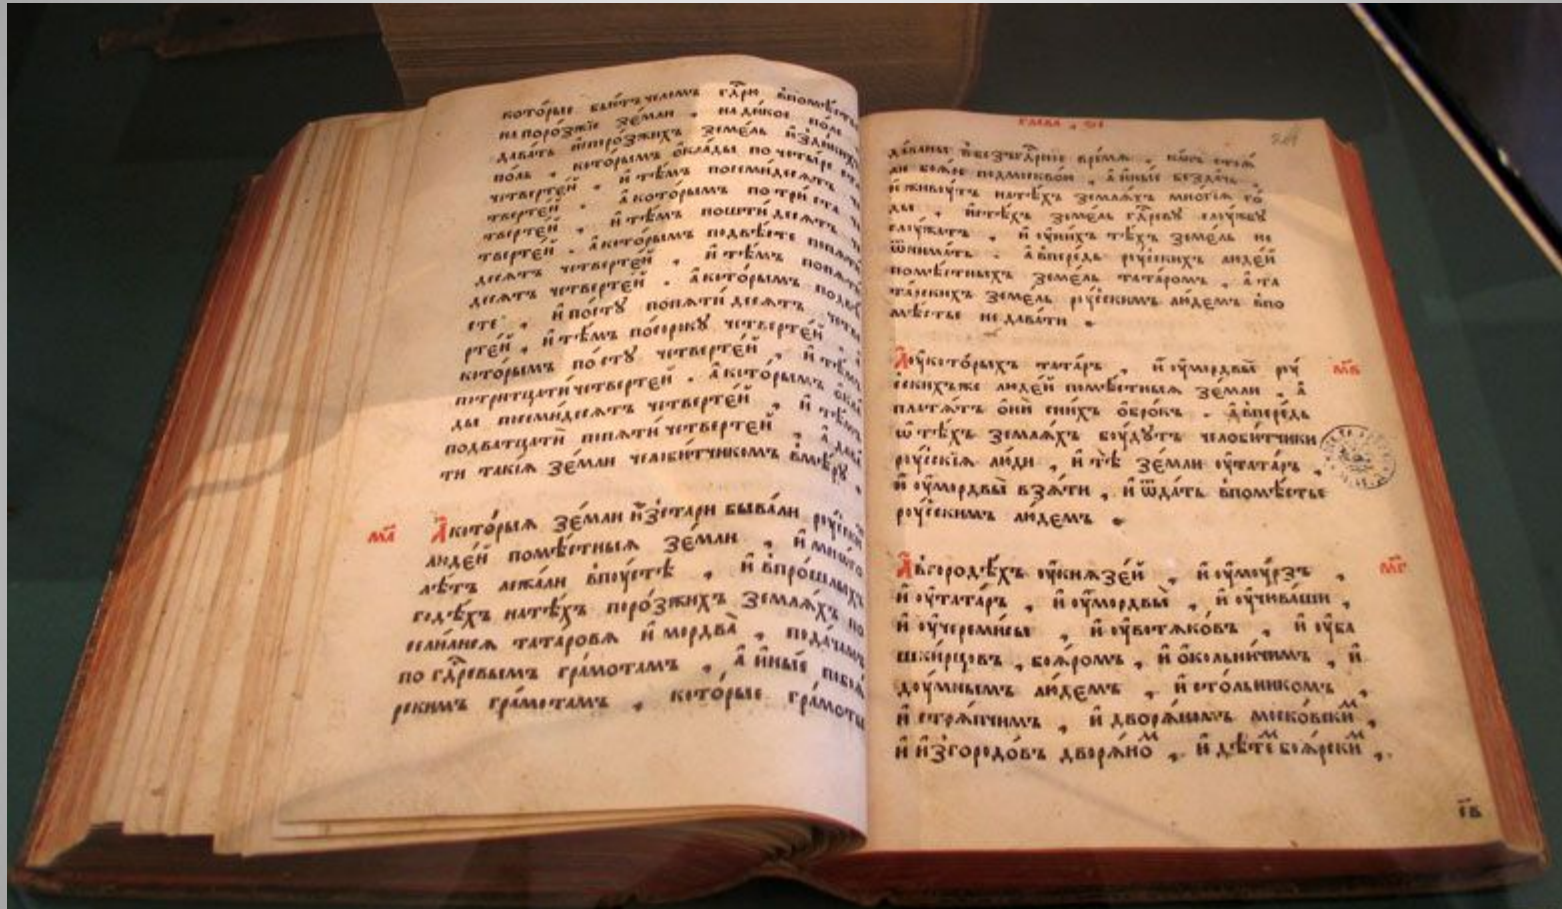 которые бью́тъ челомъ гдⷭ҇рю впомѣ́стье
на поро́зжїе зе́мли , на ди́кое по́ле
дава́ть и҆споро́зжихъ земе́ль и҆зди́кихъ
поль , кото́рымъ ѻ҆кла́ды по четы́ре ста
четверте́й , и҆ тѣ́мъ посемидеся́тъ че
тверте́й . а҆ кото́рымъ по три́ ста че
тверте́й , и҆ тѣ́мъ пошти́ деся́тъ че
тверте́й . а҆ кото́рымъ подвѣ́сте попяти
деся́тъ четверте́й , и҆ тѣ́мъ попяти
деся́тъ четверте́й . а҆ кото́рымъ подвѣ
сте , и҆ по́сту попяти́ деся́тъ четве
рте́й , и҆ тѣ́мъ посо́рокꙋ четверте́й . а҆
кото́рымъ по́сту четверте́й , и҆ тѣ́мъ
потритцати́ четверте́й . а҆ кото́рымъ ѻ҆кла́
ды посемидеся́тъ четверте́й , и҆ тѣ́мъ
подватцети́ попяти́ четверте́й , а҆ дава́
ти такі́я зе́мли челоби́тчикомъ вмѣ́рꙋ .
м҃а А҆ кото́рыя зе́мли и҆зстари быва́ли рꙋ́ски
люде́й помѣ́стныя зе́мли , и҆ мно́гѡ
лѣ́тъ лежа́ли впꙋ́стѣ , и҆ впро́шлыхъ
годѣ́хъ натѣ́хъ поро́зжихъ земля́хъ по
сели́лися татаровя и҆ мордва̀ , пода́чамъ
по гдⷭ҇ревымъ гра́мотамъ , а҆ и҆ны́е побоя́
рскимъ гра́мотамъ , кото́рые гра́моты
глава , ѕ҃і
да́ваны вбезгдⷭ҇рное вре́мя , ка́къ стоя́
ли боя́ре подмоскво́ю , а҆ и҆ны́е безда́чь ,
и҆ живꙋ́тъ натѣ́хъ земля́хъ мно́гїя го́
ды , и҆стѣ́хъ земе́ль гдⷭ҇ревꙋ слꙋ́жбꙋ
слꙋ́жатъ , и҆ ᲂу҆ни́хъ тѣ́хъ земе́ль не
ѿнима́ть . а҆ впере́дь рꙋ́сскихъ люде́й
помѣ́стныхъ земе́ль тата́ромъ , а҆ та
та́рскихъ земе́ль рꙋ́сскимъ лю́демъ впо
мѣ́стье не дава́ти .
А҆ ᲂу҆кото́рыхъ тата́ръ , и҆ ᲂу҆мордвы̀ рꙋ́ м҃в
сскихъже люде́й помѣ́стныя зе́мли , а҆
платя́тъ ѻ҆нѝ сни́хъ ѻ҆бро́къ . а҆ впере́дь
ѡ҆ тѣ́хъ земля́хъ бꙋ́дꙋтъ челоби́тчики
рꙋ́сскїя лю́ди , и҆ тѣ̀ зе́мли ᲂу҆тата́ръ ,
и҆ ᲂу҆мордвы̀ взя́ти , и҆ ѿда́ть впомѣ́стье
рꙋ́сскимъ лю́демъ .
А҆ вгородѣ́хъ ᲂу҆князе́й , и҆ ᲂу҆мꙋ́рзъ , м҃г
и҆ ᲂу҆тата́ръ , и҆ ᲂу҆мордвы̀ , и҆ ᲂу҆чюваши ,
и҆ ᲂу҆череми́сы , и҆ ᲂу҆вотяко́въ , и҆ ᲂу҆ба
шки́рцовъ , боя́ромъ , и҆ ѻ҆ко́льничимъ , и҆
дꙋ́мнымъ лю́демъ , и҆ сто́льникомъ ,
и҆ стря́пчимъ , и҆ дворя́номъ моско́вскиⷨ ,
и҆ и҆згородо́въ дворя́ноⷨ , и҆ дѣ́теⷨ боя́рскиⷨ ,